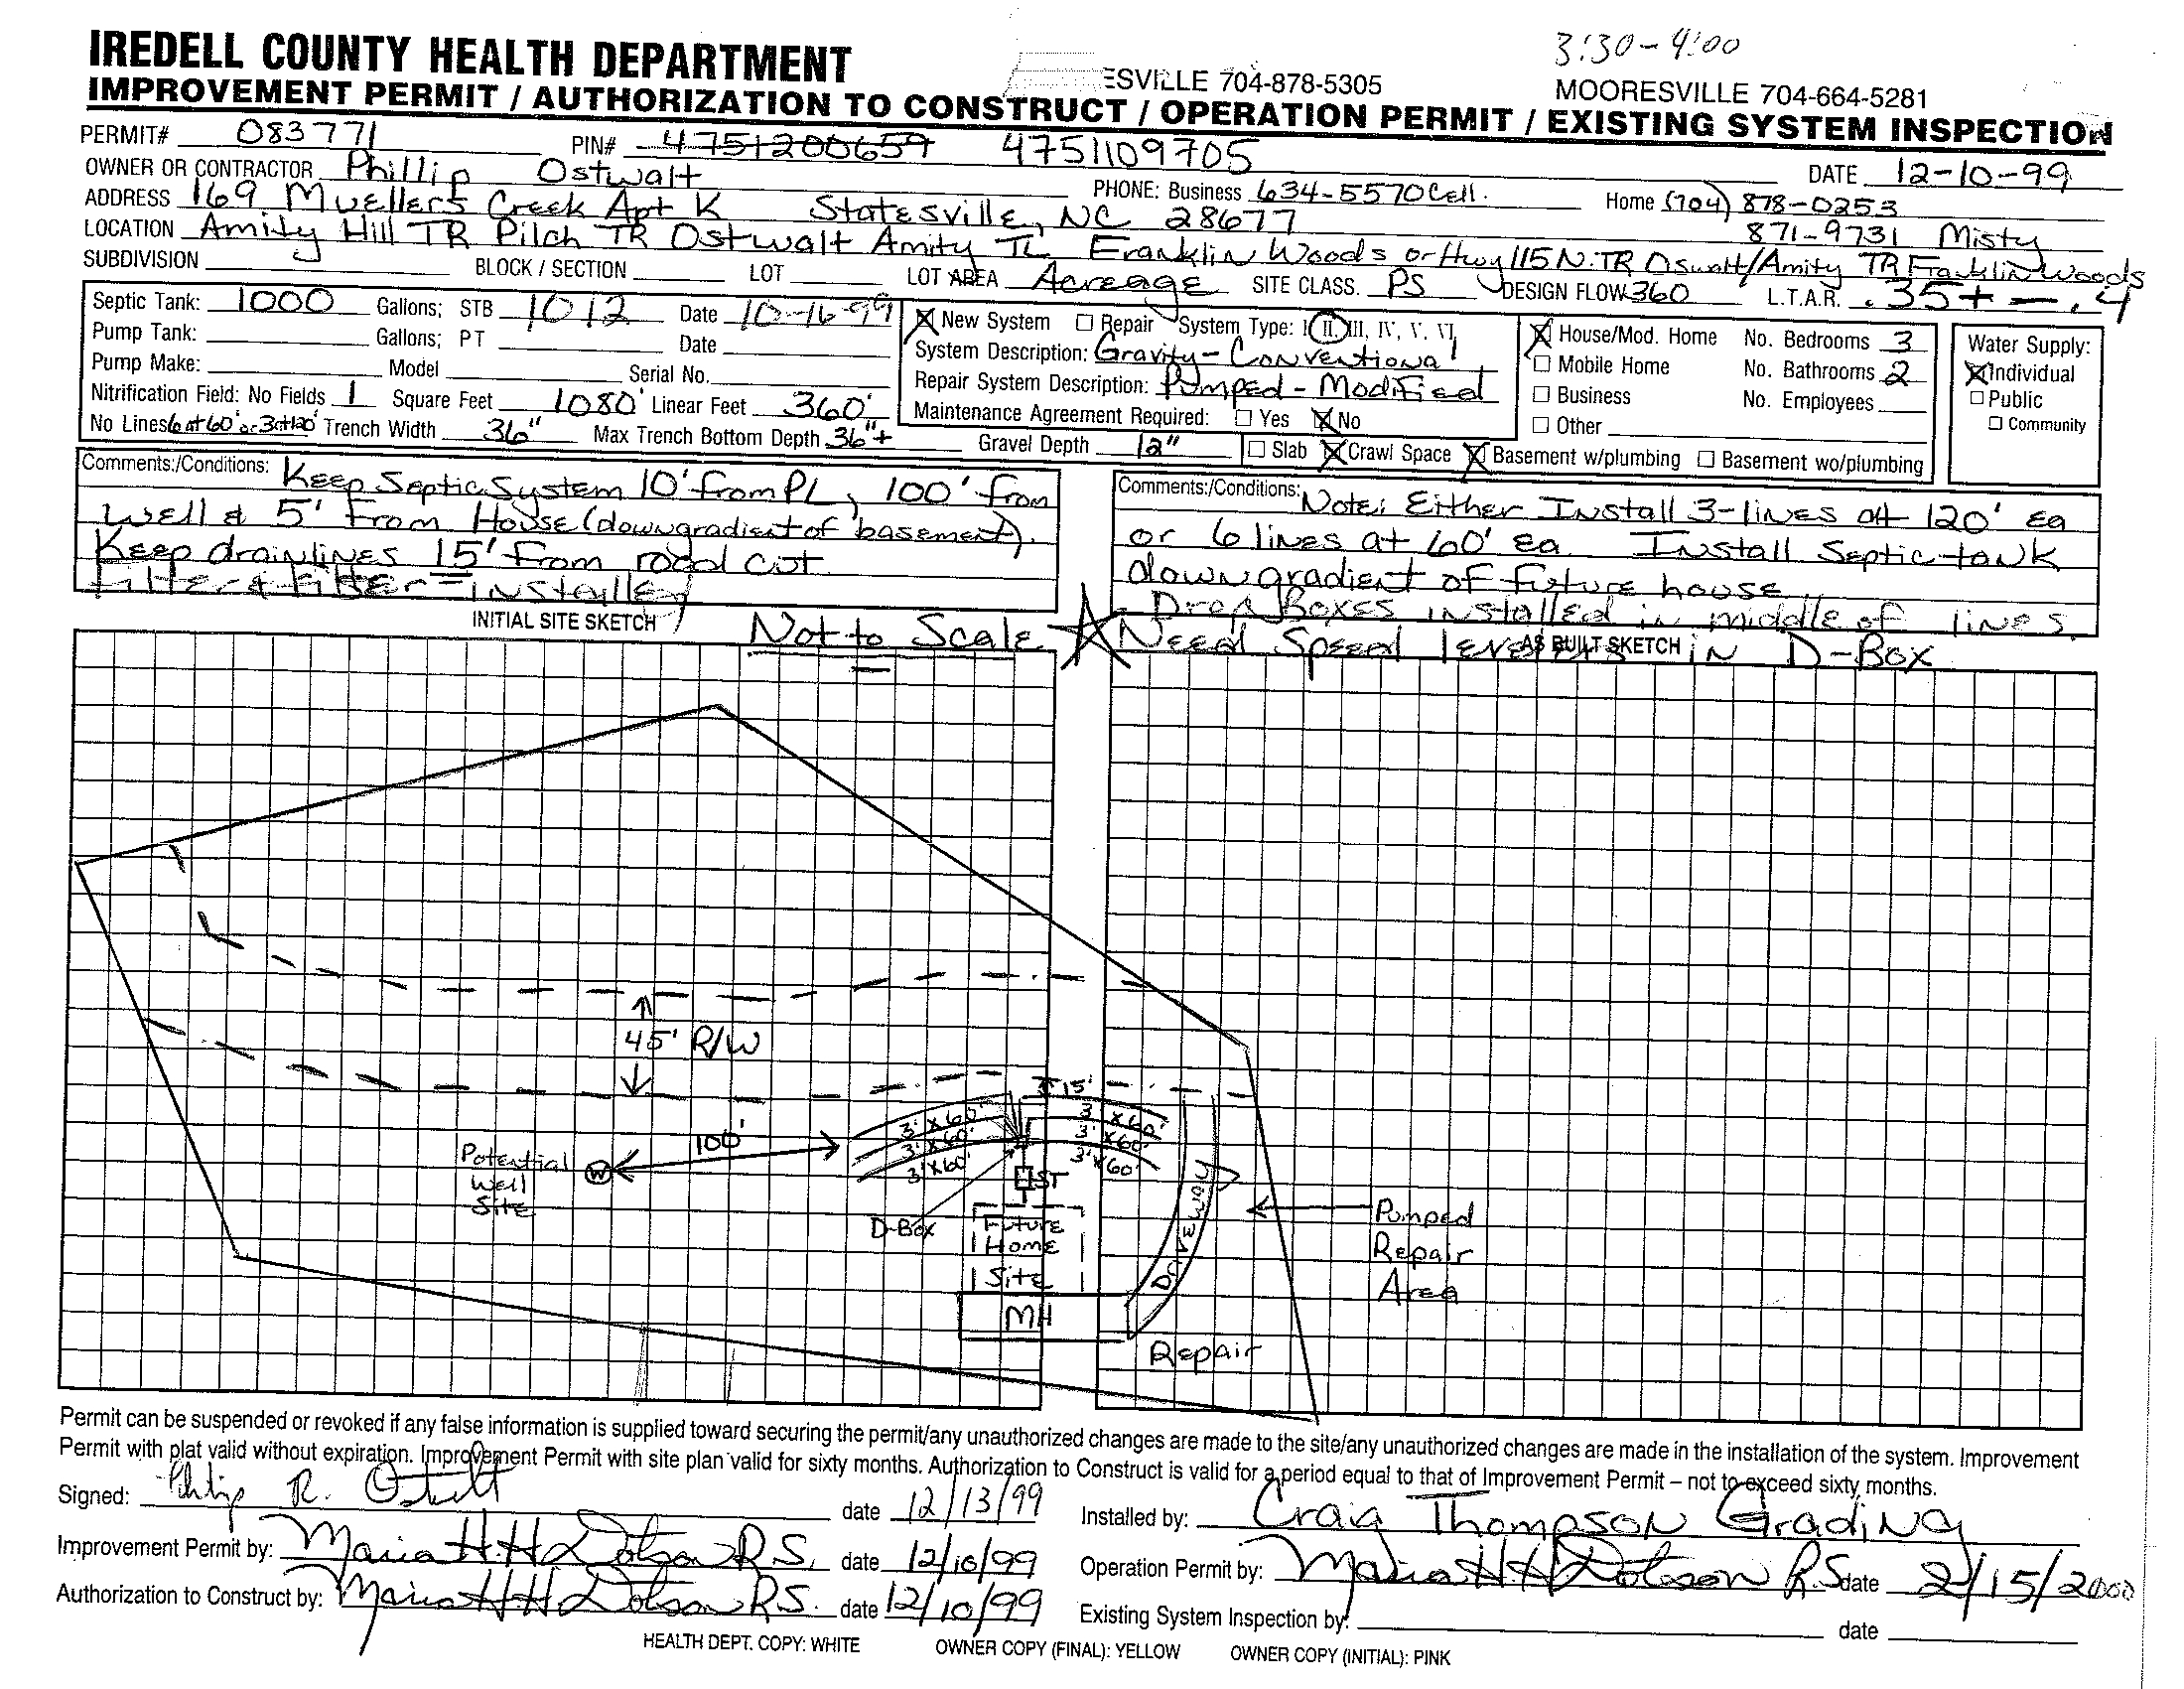 3:30-4:00
IREDELL COUNTY HEALTH DEPARTMENT
ESVILLE 704-878-5305 MOORESVILLE 704-664-5281
IMPROVEMENT PERMIT / AUTHORIZATION TO CONSTRUCT / OPERATION PERMIT / EXISTING SYSTEM INSPECTION
PERMIT# 083771 PIN# 4751200659 4751109705
OWNER OR CONTRACTOR Phillip Ostwalt DATE 12-10-99
ADDRESS 169 Muellers Creek Apt K Statesville, NC 28677 PHONE: Business 634-5570 Cell. Home (704) 878-0253
871-9731 Misty
LOCATION Amity Hill TR Pilch TR Ostwalt Amity TL Franklin Woods or Hwy 115 N. TR Oswalt/Amity TR Franklin Woods
SUBDIVISION BLOCK / SECTION LOT LOT AREA Acreage SITE CLASS. PS DESIGN FLOW 360 L.T.A.R. .35+ - .4
Septic Tank: 1000 Gallons; STB 1012 Date 10-16-99
Pump Tank: Gallons; PT Date
Pump Make: Model Serial No.
Nitrification Field: No Fields 1 Square Feet 1080' Linear Feet 360'
No Lines 6 at 60' or 3 at 120' Trench Width 36" Max Trench Bottom Depth 36"+ Gravel Depth 12"
New System Repair System Type: I, II, III, IV, V, VI,
System Description: Gravity-Conventional
Repair System Description: Pumped-Modified
Maintenance Agreement Required: Yes No
Slab Crawl Space Basement w/plumbing Basement wo/plumbing
House/Mod. Home No. Bedrooms 3
Mobile Home No. Bathrooms 2
Business No. Employees
Other
Water Supply:
Individual
Public
Community
Comments:/Conditions: Keep Septic System 10' from PL, 100' from
Well & 5' from House (downgradient of basement).
Keep drainlines 15' from road cut
Filter & Filter installed
Comments:/Conditions: Note: Either Install 3-lines at 120' Ea
or 6 lines at 60' Ea. Install Septic tank
downgradient of future house.
Drop Boxes installed in middle of lines.
Need Speed levelers in D-Box
INITIAL SITE SKETCH
Not to Scale
AS BUILT SKETCH
45' R/W
15'
3' X 60'
3' X 60'
3' X 60'
3' X 60'
3' X 60'
3' X 60'
100'
Potential
Well
Site
W
ST
D-Box
Future
Home
Site
MH
Driveway
Pumped
Repair
Area
Repair
Permit can be suspended or revoked if any false information is supplied toward securing the permit/any unauthorized changes are made to the site/any unauthorized changes are made in the installation of the system. Improvement
Permit with plat valid without expiration. Improvement Permit with site plan valid for sixty months. Authorization to Construct is valid for a period equal to that of Improvement Permit – not to exceed sixty months.
Signed: Philip R. Ostwalt date 12/13/99 Installed by: Craig Thompson Grading
Improvement Permit by: Maria H.H. Dotson R.S. date 12/10/99 Operation Permit by: Maria H H Dotson R.S. date 2/15/2000
Authorization to Construct by: Maria H.H. Dotson R.S. date 12/10/99 Existing System Inspection by: date
HEALTH DEPT. COPY: WHITE OWNER COPY (FINAL): YELLOW OWNER COPY (INITIAL): PINK